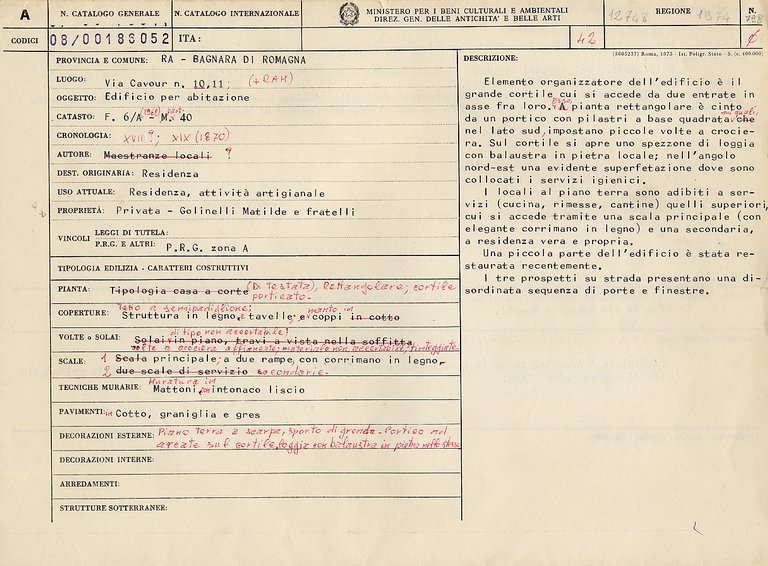 A
N. CATALOGO GENERALE
N. CATALOGO INTERNAZIONALE
MINISTERO PER I BENI CULTURALI E AMBIENTALI
DIREZ. GEN. DELLE ANTICHITA' E BELLE ARTI
12748
REGIONE
1974
N.
798
CODICI
08/00186052
ITA:
42
(5605237) Roma, 1975 - Ist. Poligr. Stato - S. (c. 400.000)
PROVINCIA E COMUNE: RA - BAGNARA DI ROMAGNA
LUOGO: Via Cavour n. 10,11; (+RAM)
OGGETTO: Edificio per abitazione
CATASTO: F. 6/A - M. 40
CRONOLOGIA: XVII?; XIX (1870)
AUTORE: Maestranze locali ?
DEST. ORIGINARIA: Residenza
USO ATTUALE: Residenza, attività artigianale
PROPRIETÀ: Privata - Golinelli Matilde e fratelli
VINCOLI
LEGGI DI TUTELA:
P.R.G. E ALTRI: P.R.G. zona A
TIPOLOGIA EDILIZIA - CARATTERI COSTRUTTIVI
PIANTA: Tipologia casa a corte (Di testata), Rettangolare; cortile
porticato.
Tetto a semipadiglione; manto in
COPERTURE: Struttura in legno, tavelle e coppi in cotto
di tipo non accertabile;
VOLTE o SOLAI: Solai in piano, travi a vista nella soffitta
volte a crociera affiancate, materiale non accertabile, tinteggiate.
SCALE: 1 Scala principale; a due rampe, con corrimano in legno,
2 due scale di servizio secondarie.
Muratura in
TECNICHE MURARIE: Mattoni, intonaco liscio
PAVIMENTI: in Cotto, graniglia e gres
DECORAZIONI ESTERNE: Piano terra a scarpa, sporto di gronda. Portico ad
arcate sul cortile, loggia con balaustra in pietra nello stesso
DECORAZIONI INTERNE:
ARREDAMENTI:
STRUTTURE SOTTERRANEE:
DESCRIZIONE:
Elemento organizzatore dell'edificio è il
grande cortile cui si accede da due entrate in
asse fra loro. Esso, A pianta rettangolare è cinto
da un portico con pilastri a base quadrata, che
nel lato sud, impostano piccole volte a crocie-
ra. Sul cortile si apre uno spezzone di loggia
con balaustra in pietra locale; nell'angolo
nord-est una evidente superfetazione dove sono
collocati i servizi igienici.
I locali al piano terra sono adibiti a ser-
vizi (cucina, rimesse, cantine) quelli superiori,
cui si accede tramite una scala principale (con
elegante corrimano in legno) e una secondaria,
a residenza vera e propria.
Una piccola parte dell'edificio è stata re-
staurata recentemente.
I tre prospetti su strada presentano una di-
sordinata sequenza di porte e finestre.